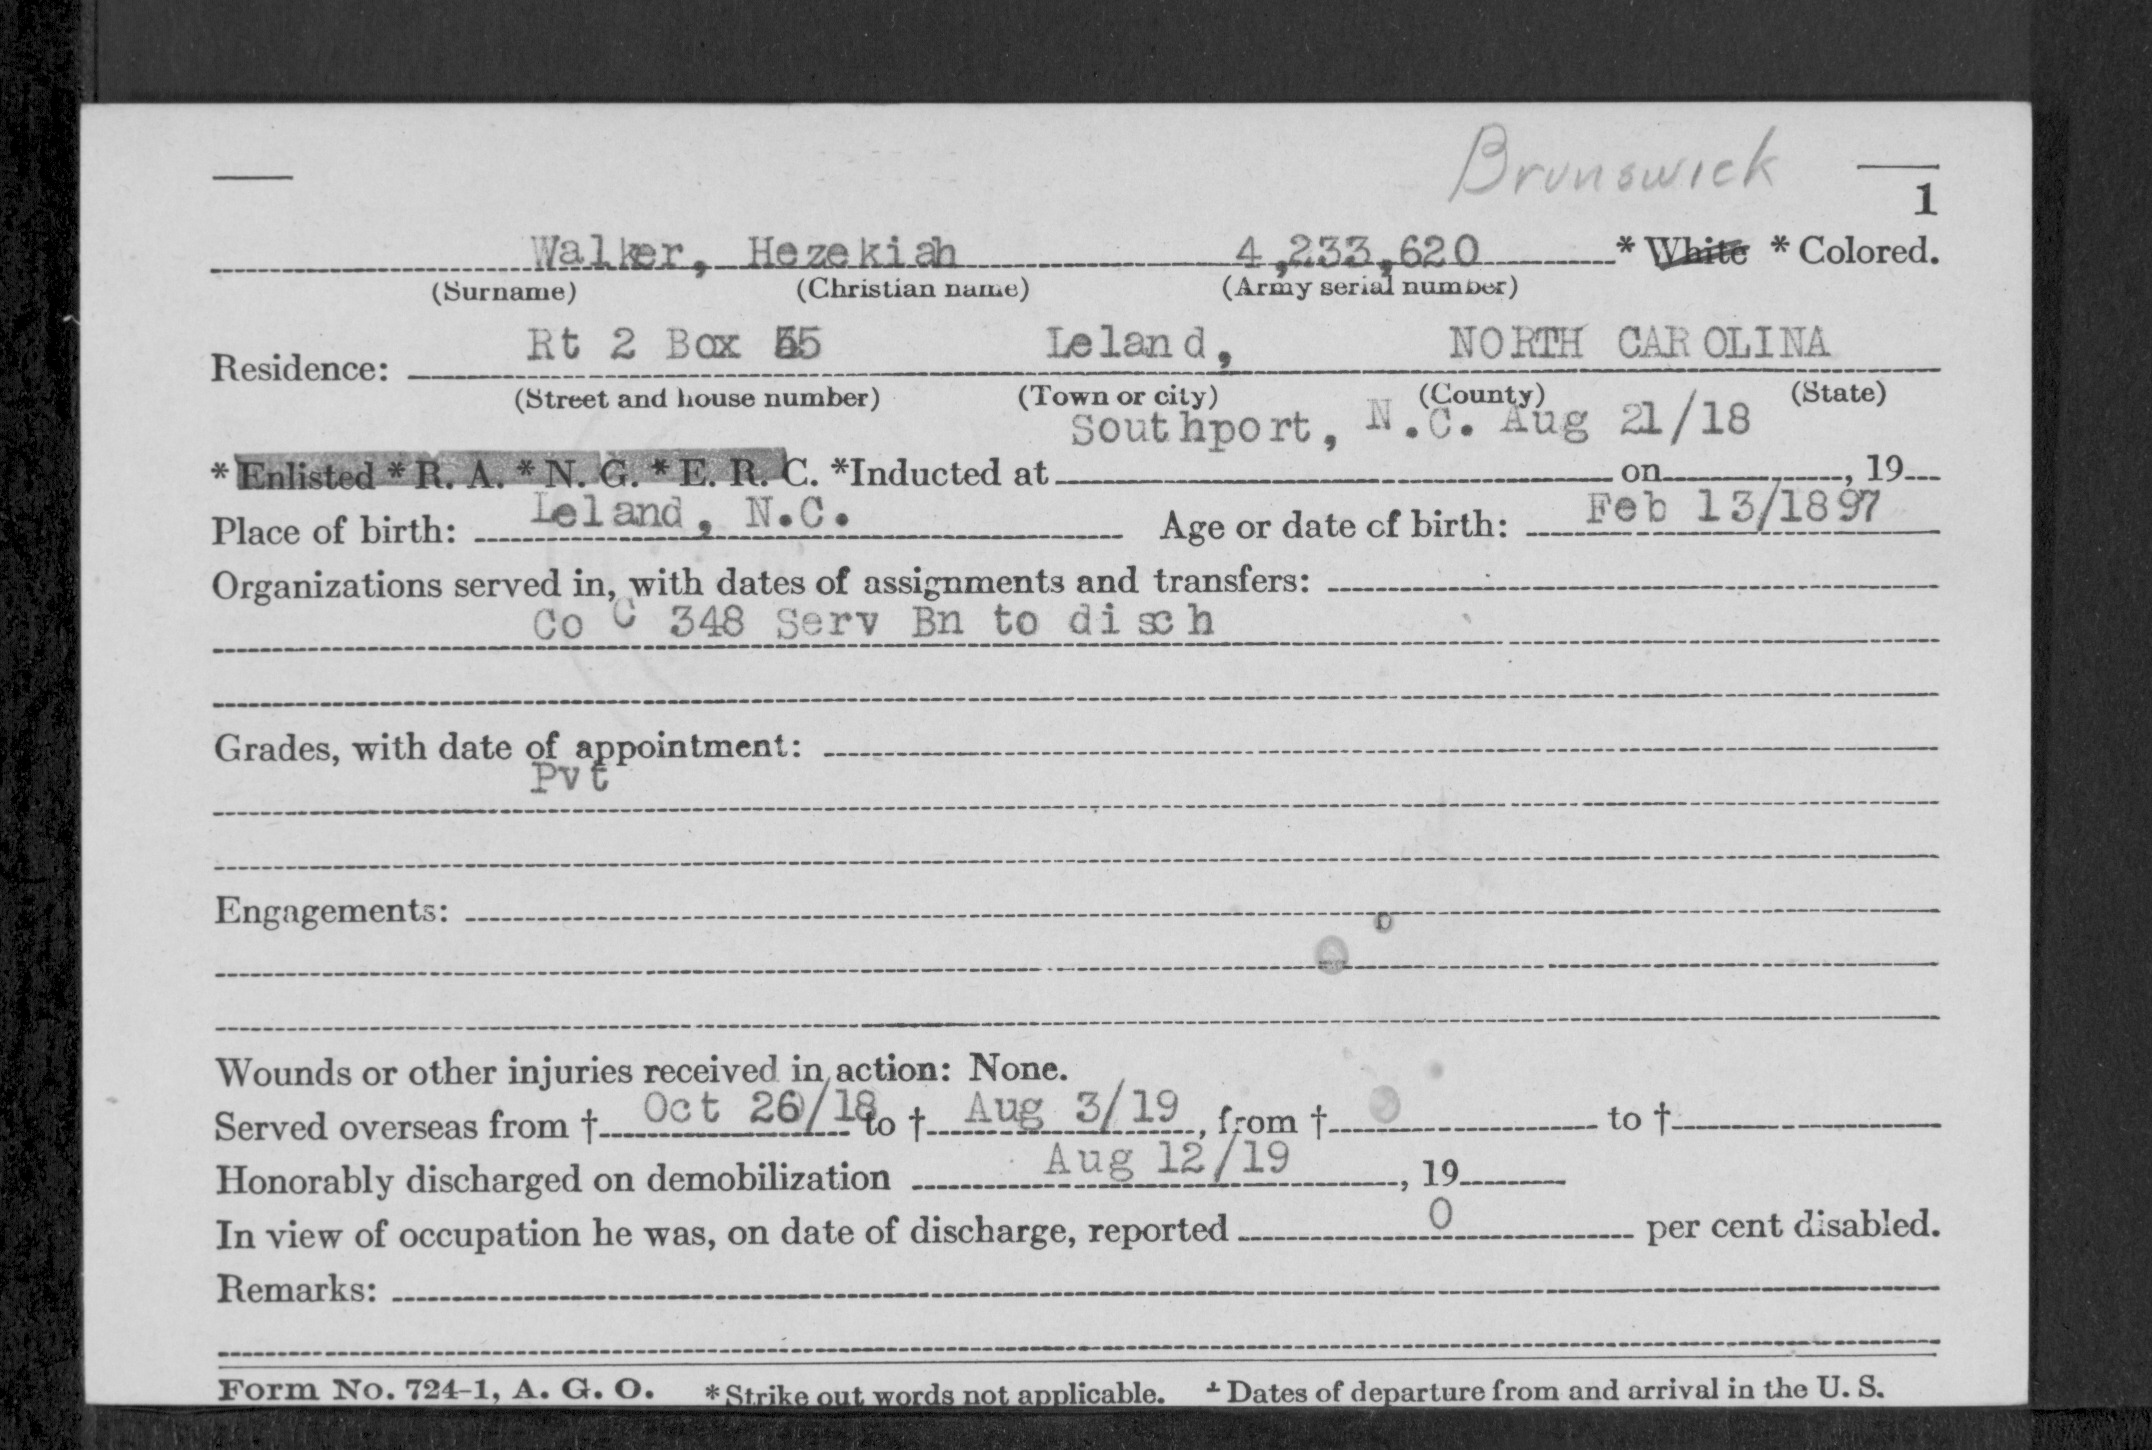 Brunswick
1
Walker, Hezekiah 4,233,620 * White * Colored.
(Surname) (Christian name) (Army serial number)
Rt 2 Box 55 Leland, NORTH CAROLINA
Residence:
(Street and house number) (Town or city) (County) (State)
Southport, N.C. Aug 21/18
* Enlisted * R. A. * N. G. * E. R. C. *Inducted at on , 19
Place of birth: Leland, N.C. Age or date of birth: Feb 13/1897
Organizations served in, with dates of assignments and transfers:
Co C 348 Serv Bn to disch
Grades, with date of appointment:
Pvt
Engagements:
Wounds or other injuries received in action: None.
Served overseas from † Oct 26/18 to † Aug 3/19, from † to †
Honorably discharged on demobilization Aug 12/19, 19
In view of occupation he was, on date of discharge, reported 0 per cent disabled.
Remarks:
Form No. 724-1, A. G. O. *Strike out words not applicable. † Dates of departure from and arrival in the U. S.